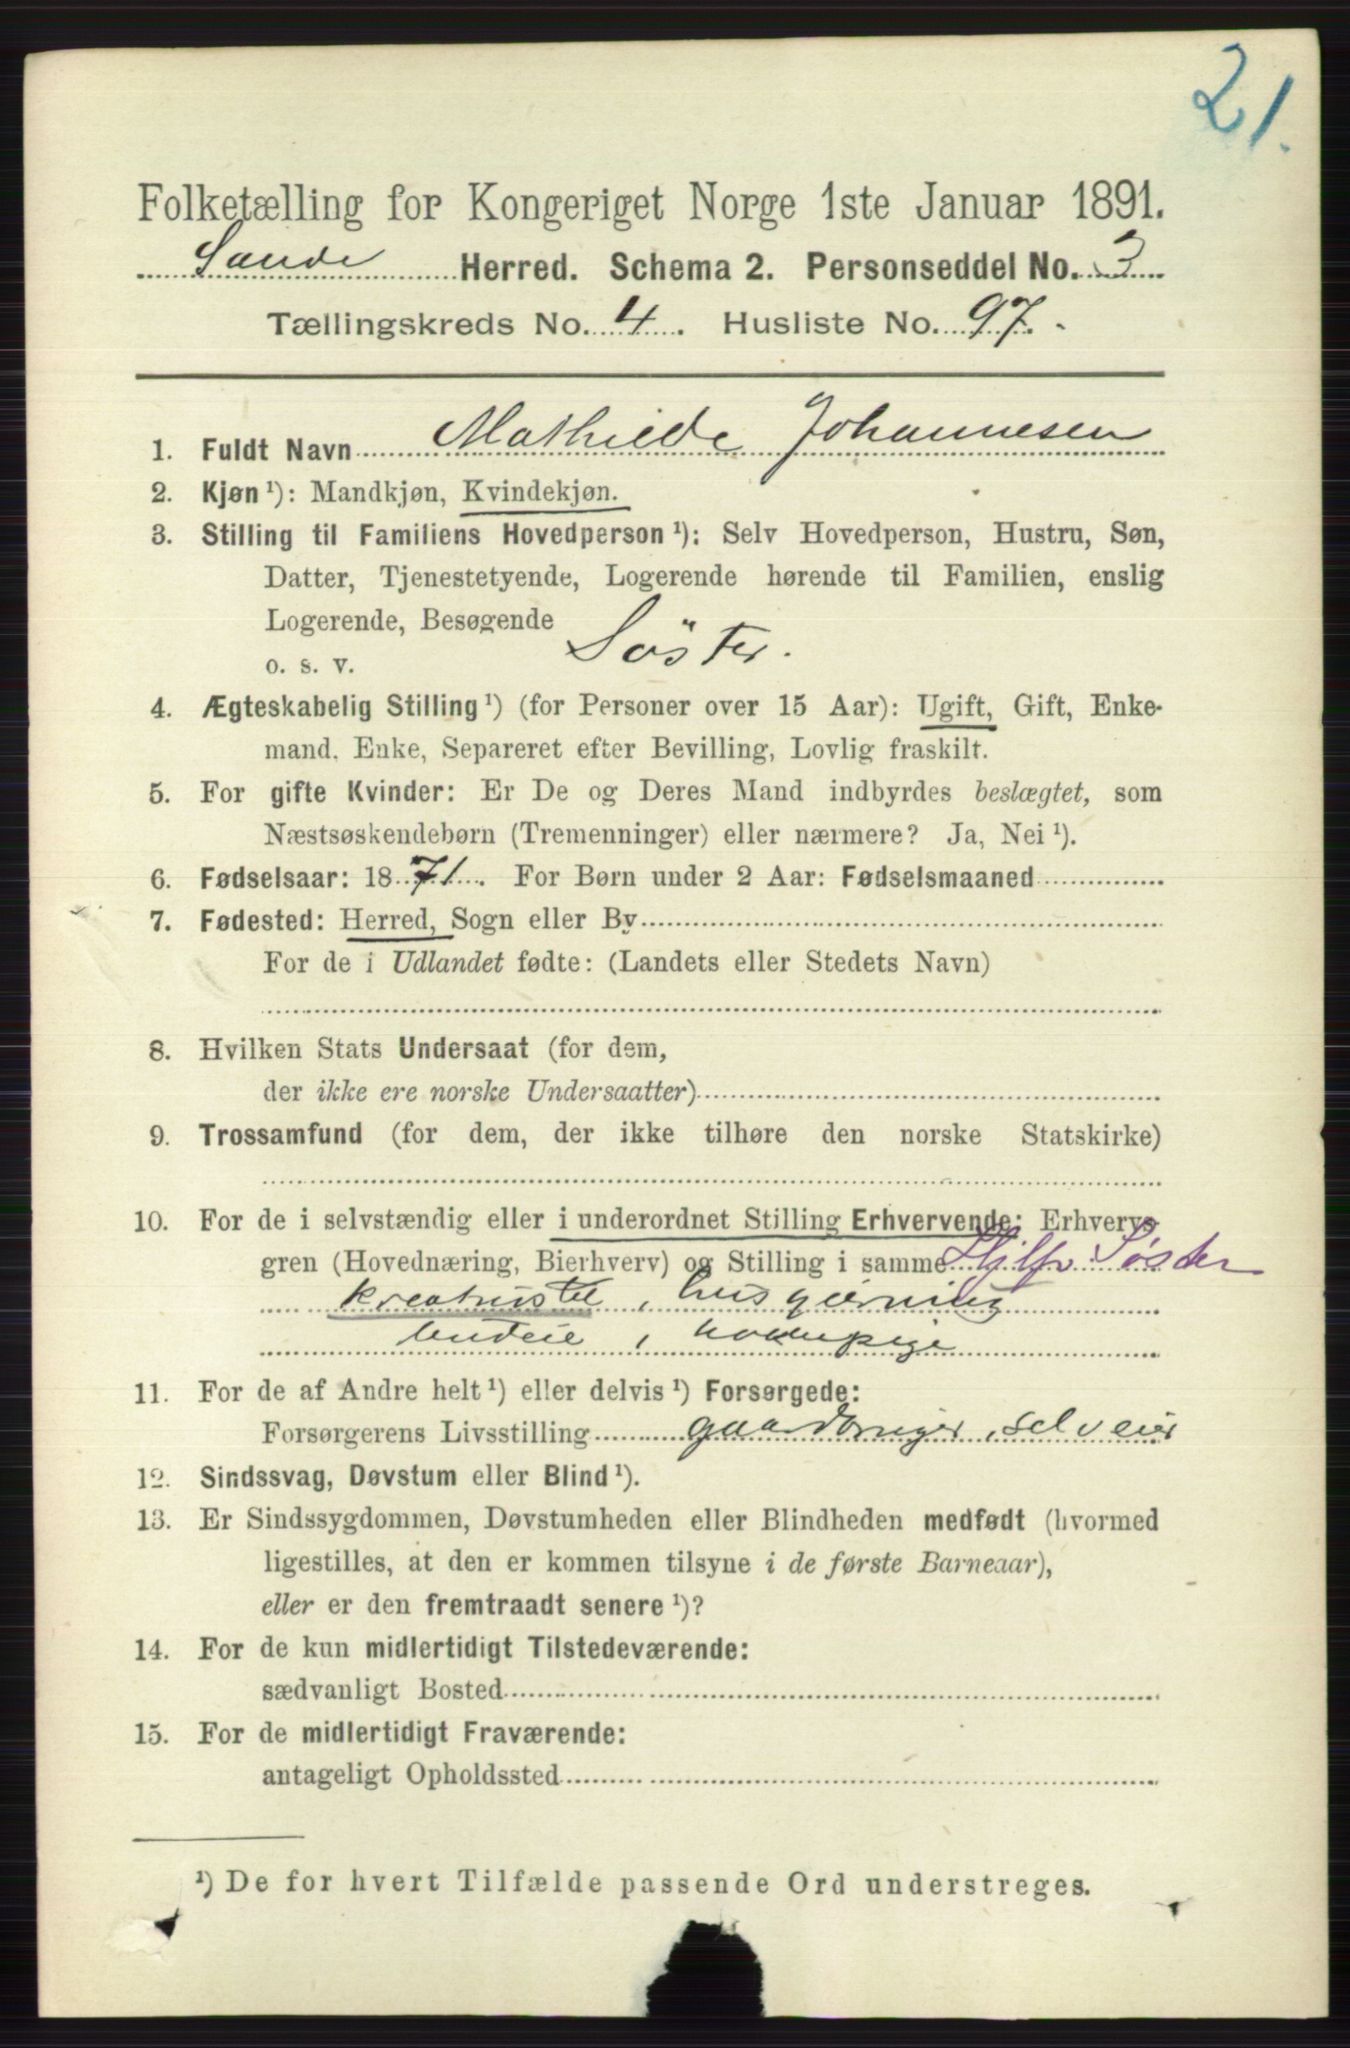 21.
Folketælling for Kongeriget Norge 1ste Januar 1891.
Sande Herred. Schema 2. Personseddel No. 3
Tællingskreds No. 4. Husliste No. 97.
1. Fuldt Navn Mathilde Johannesen
2. Kjøn ¹): Mandkjøn, Kvindekjøn.
3. Stilling til Familiens Hovedperson ¹): Selv Hovedperson, Hustru, Søn,
Datter, Tjenestetyende, Logerende hørende til Familien, enslig
Logerende, Besøgende
o. s. v. Söster.
4. Ægteskabelig Stilling ¹) (for Personer over 15 Aar): Ugift, Gift, Enke-
mand, Enke, Separeret efter Bevilling, Lovlig fraskilt.
5. For gifte Kvinder: Er De og Deres Mand indbyrdes beslægtet, som
Næstsøskendebørn (Tremenninger) eller nærmere? Ja, Nei ¹).
6. Fødselsaar: 1871. For Børn under 2 Aar: Fødselsmaaned
7. Fødested: Herred, Sogn eller By
For de i Udlandet fødte: (Landets eller Stedets Navn)
8. Hvilken Stats Undersaat (for dem,
der ikke ere norske Undersaatter)
9. Trossamfund (for dem, der ikke tilhøre den norske Statskirke)
10. For de i selvstændig eller i underordnet Stilling Erhvervende: Erhvervs-
gren (Hovednæring, Bierhverv) og Stilling i samme Hjelper Søster
kreaturstel, husgjerning
11. For de af Andre helt ¹) eller delvis ¹) Forsørgede:
Forsørgerens Livsstilling gaardbruger, selveier
12. Sindssvag, Døvstum eller Blind ¹).
13. Er Sindssygdommen, Døvstumheden eller Blindheden medfødt (hvormed
ligestilles, at den er kommen tilsyne i de første Barneaar),
eller er den fremtraadt senere ¹)?
14. For de kun midlertidigt Tilstedeværende:
sædvanligt Bosted
15. For de midlertidigt Fraværende:
antageligt Opholdssted
¹) De for hvert Tilfælde passende Ord understreges.